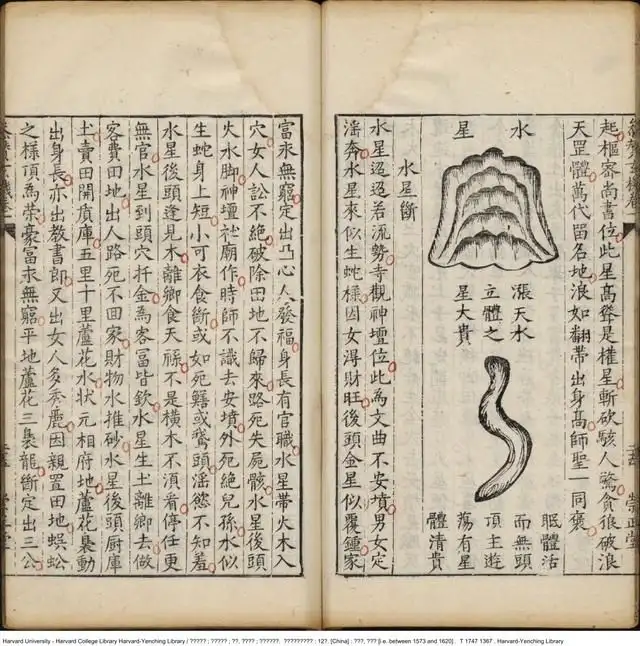 起樞密尚書位此星高聳是權星斬砍駭人驚貪狼破浪
天罡體萬代留名地浪如翻帶出身高師聖一同褒
水
星
漲天水
立體之
星大貴
眠體活
而無頭
頂主遊
蕩有星
體清貴
水星斷
水星迢迢若流勢寺觀神壇位此為文曲不安墳男女定
淫奔水星來似生蛇樣因女淂財旺後頭金星似覆鍾家
富永無窮定出凸心人發福身長有官職水星帶火木入
穴女人訟不絶破除田地不歸來路死失屍骸水星後頭
火水脚神壇社廟作時師不識去安墳外死絶兒孫水似
生蛇身上短小可衣食斷或如死鱔或鵞頭淫慾不知羞
水星後頭逢見木離鄉食天祿不是橫木不湏看停任更
無官水星到頭穴扦金為客冨皆欽水星生土離鄉去做
客費田地出人路死不回家財物水推砂水星後頭厨庫
土賣田開廣庫五里十里蘆花水狀元相府地蘆花裊動
出身長亦出教書郎又出女人多秀麗因親置田地蜈蚣
之樣頂為荣豪富永無窮平地蘆花三裊龍斷定出三公
Harvard University - Harvard College Library Harvard-Yenching Library / ????? ; ????? ; ??, ???? ; ??????. ????????? : 12?. [China] : ???, ??? [i.e. between 1573 and 1620] . T 1747 1367 . Harvard-Yenching Library